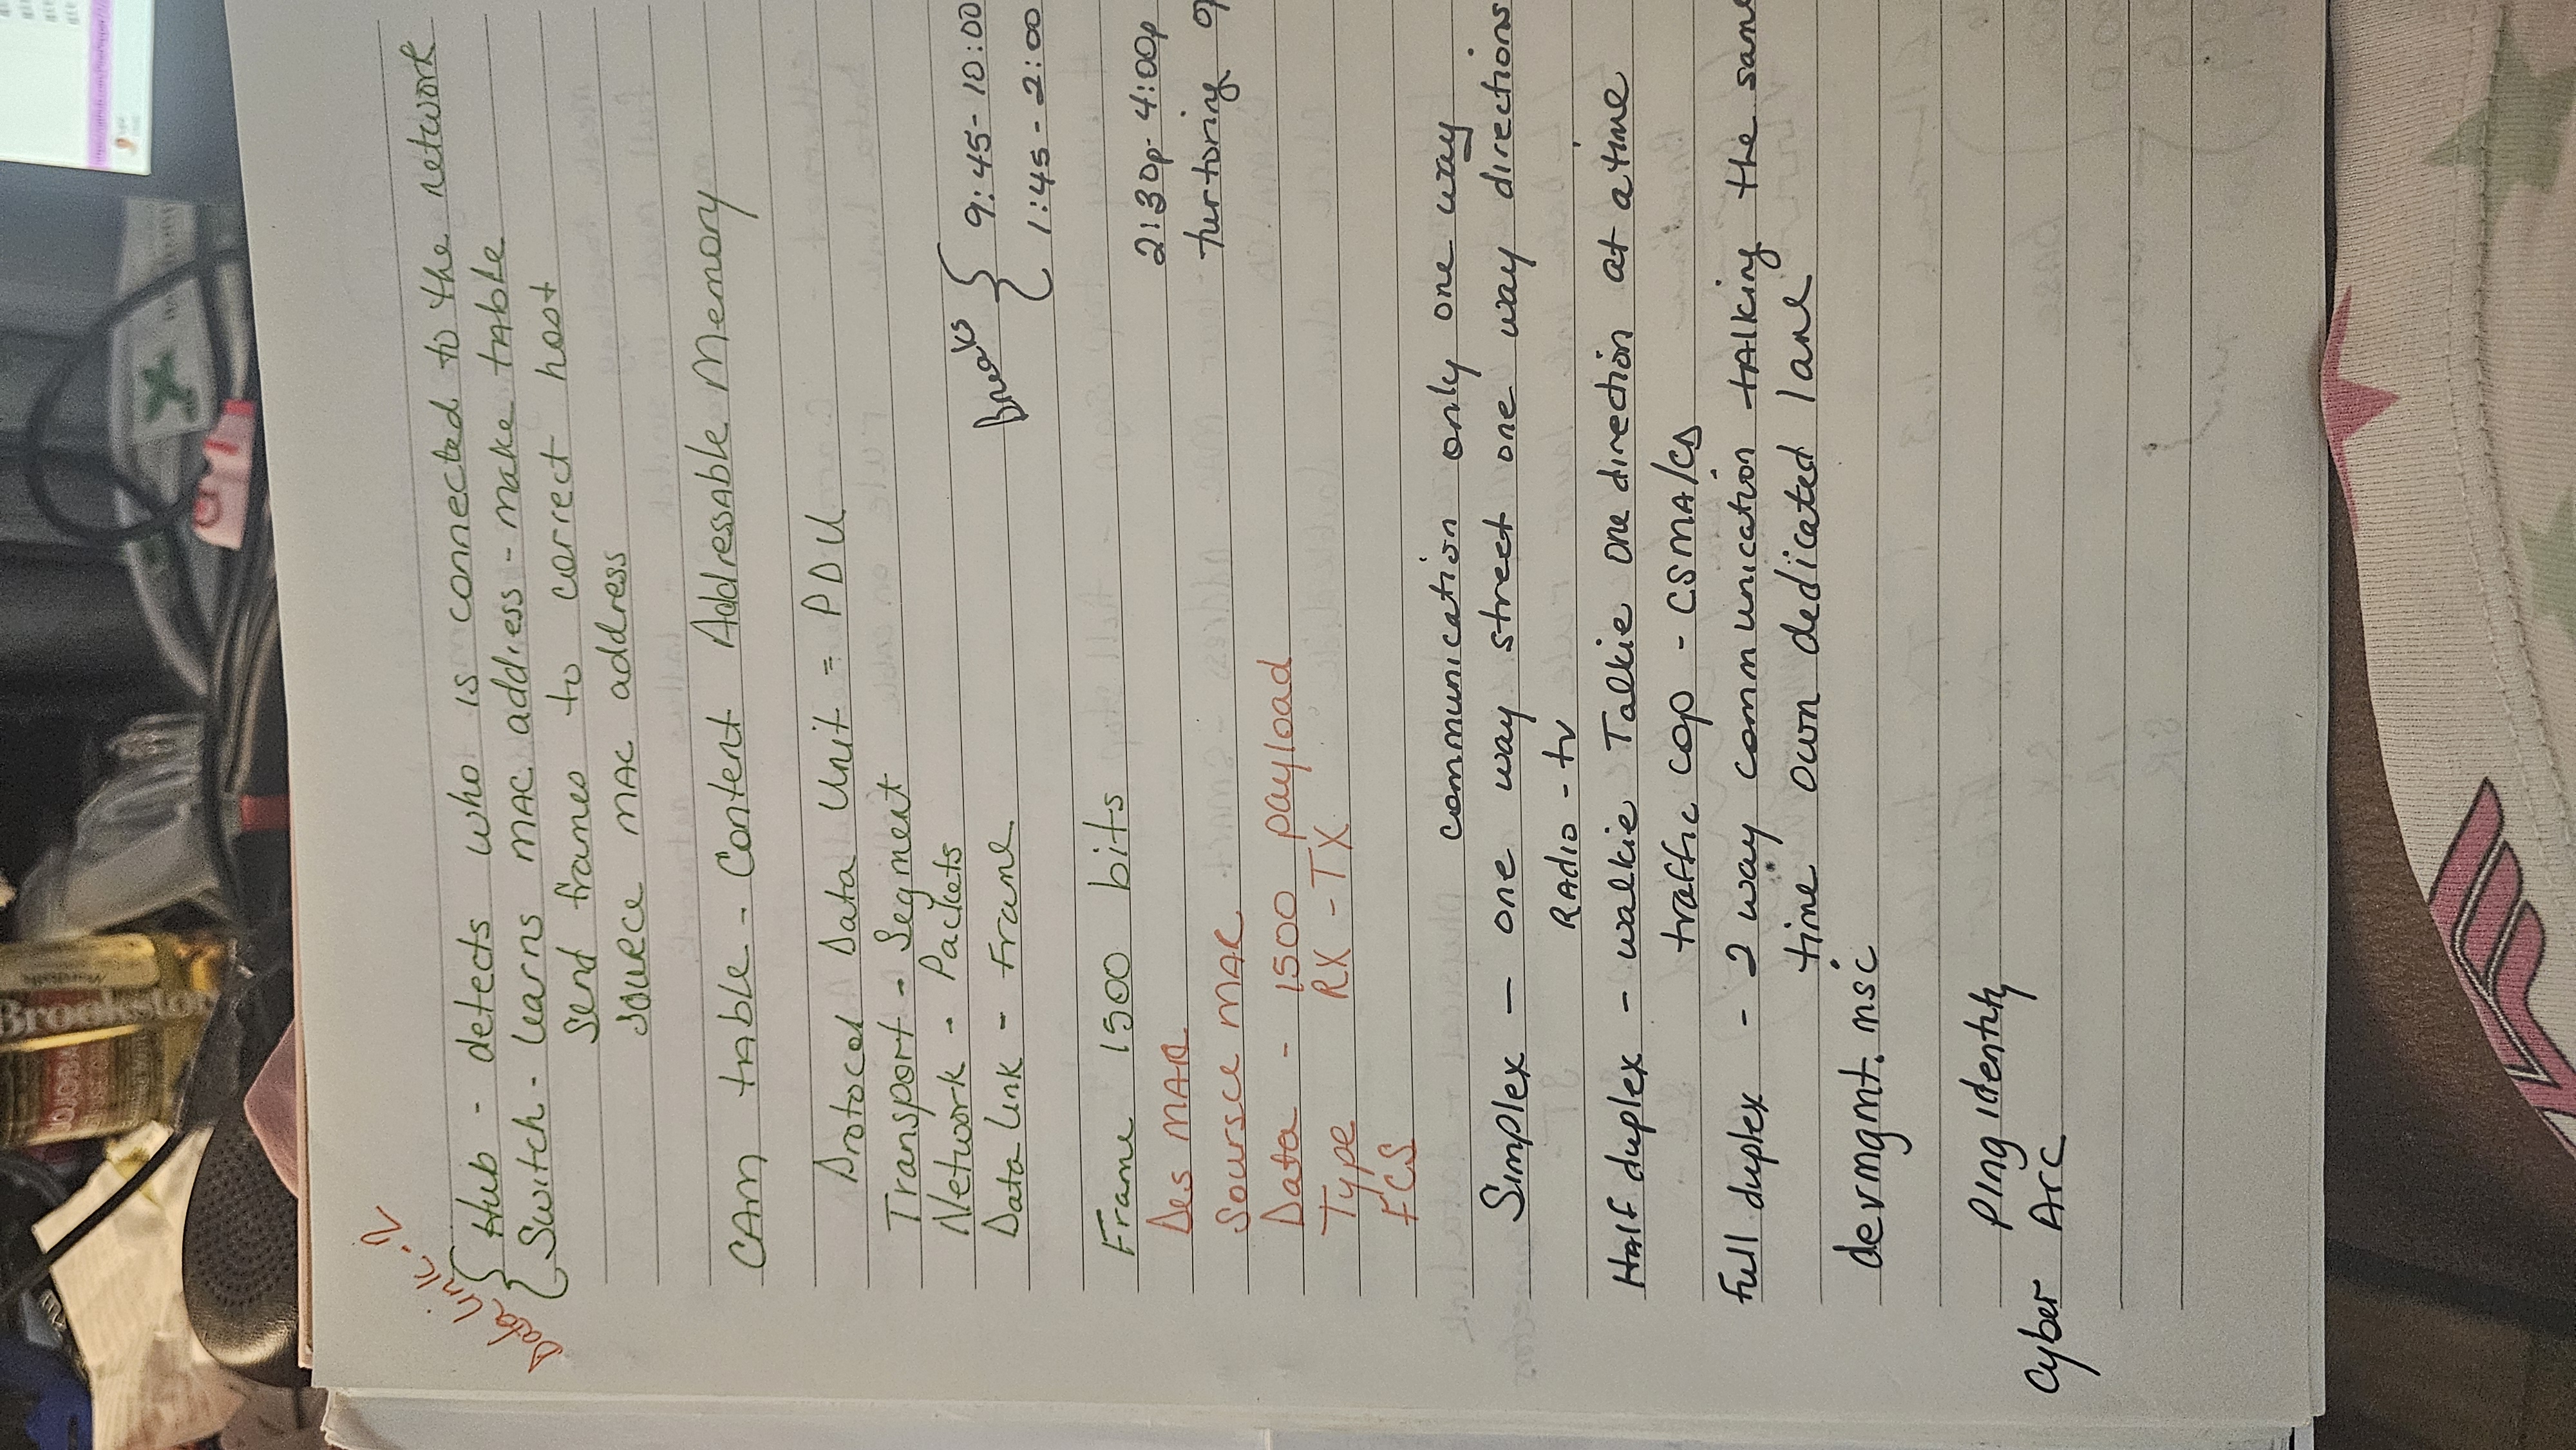 JOJOBA
Brookston
Data link - 2
Hub - detects who is connected to the network
Switch - learns MAC address - make table
send frames to correct host
source MAC address
CAM table - Content Addressable Memory
Protocol Data Unit = PDU
Transport - Segment
Network - Packets
Data link - Frame
Breaks { 9:45 - 10:00
1:45 - 2:00
Frame 1500 bits
2:30p - 4:00p
Des MAC
turtoring
Soursce MAC
Data - 1500 payload
Type RX - TX
FCS
communication only one way
Simplex - one way street one way directions
Radio - tv
Half duplex - walkie Talkie one direction at a time
traffic cop - CSMA/CD
Full duplex - 2 way communication talking the same
time own dedicated lane
devmgmt.msc
Ping identity
Cyber Arc